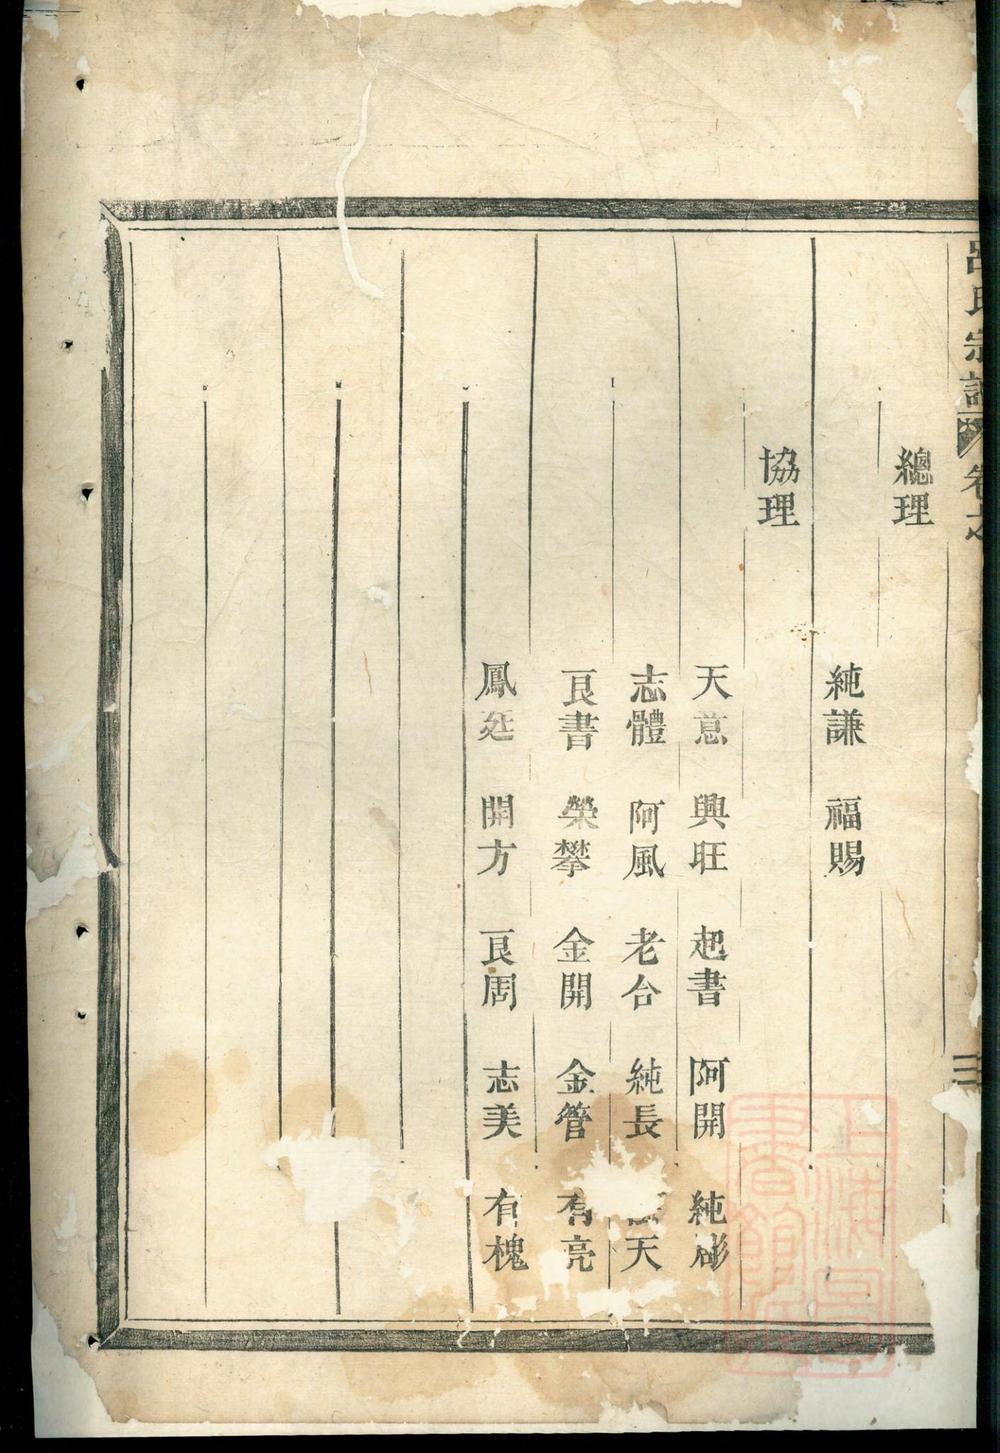 呂氏宗譜 卷之
三
總理
純謙 福賜
協理
天意 興旺 起書 阿開 純彬
志體 阿風 老台 純長 天
良書 榮攀 金開 金管 有亮
鳳廷 開方 良周 志美 有槐
上海圖書館藏